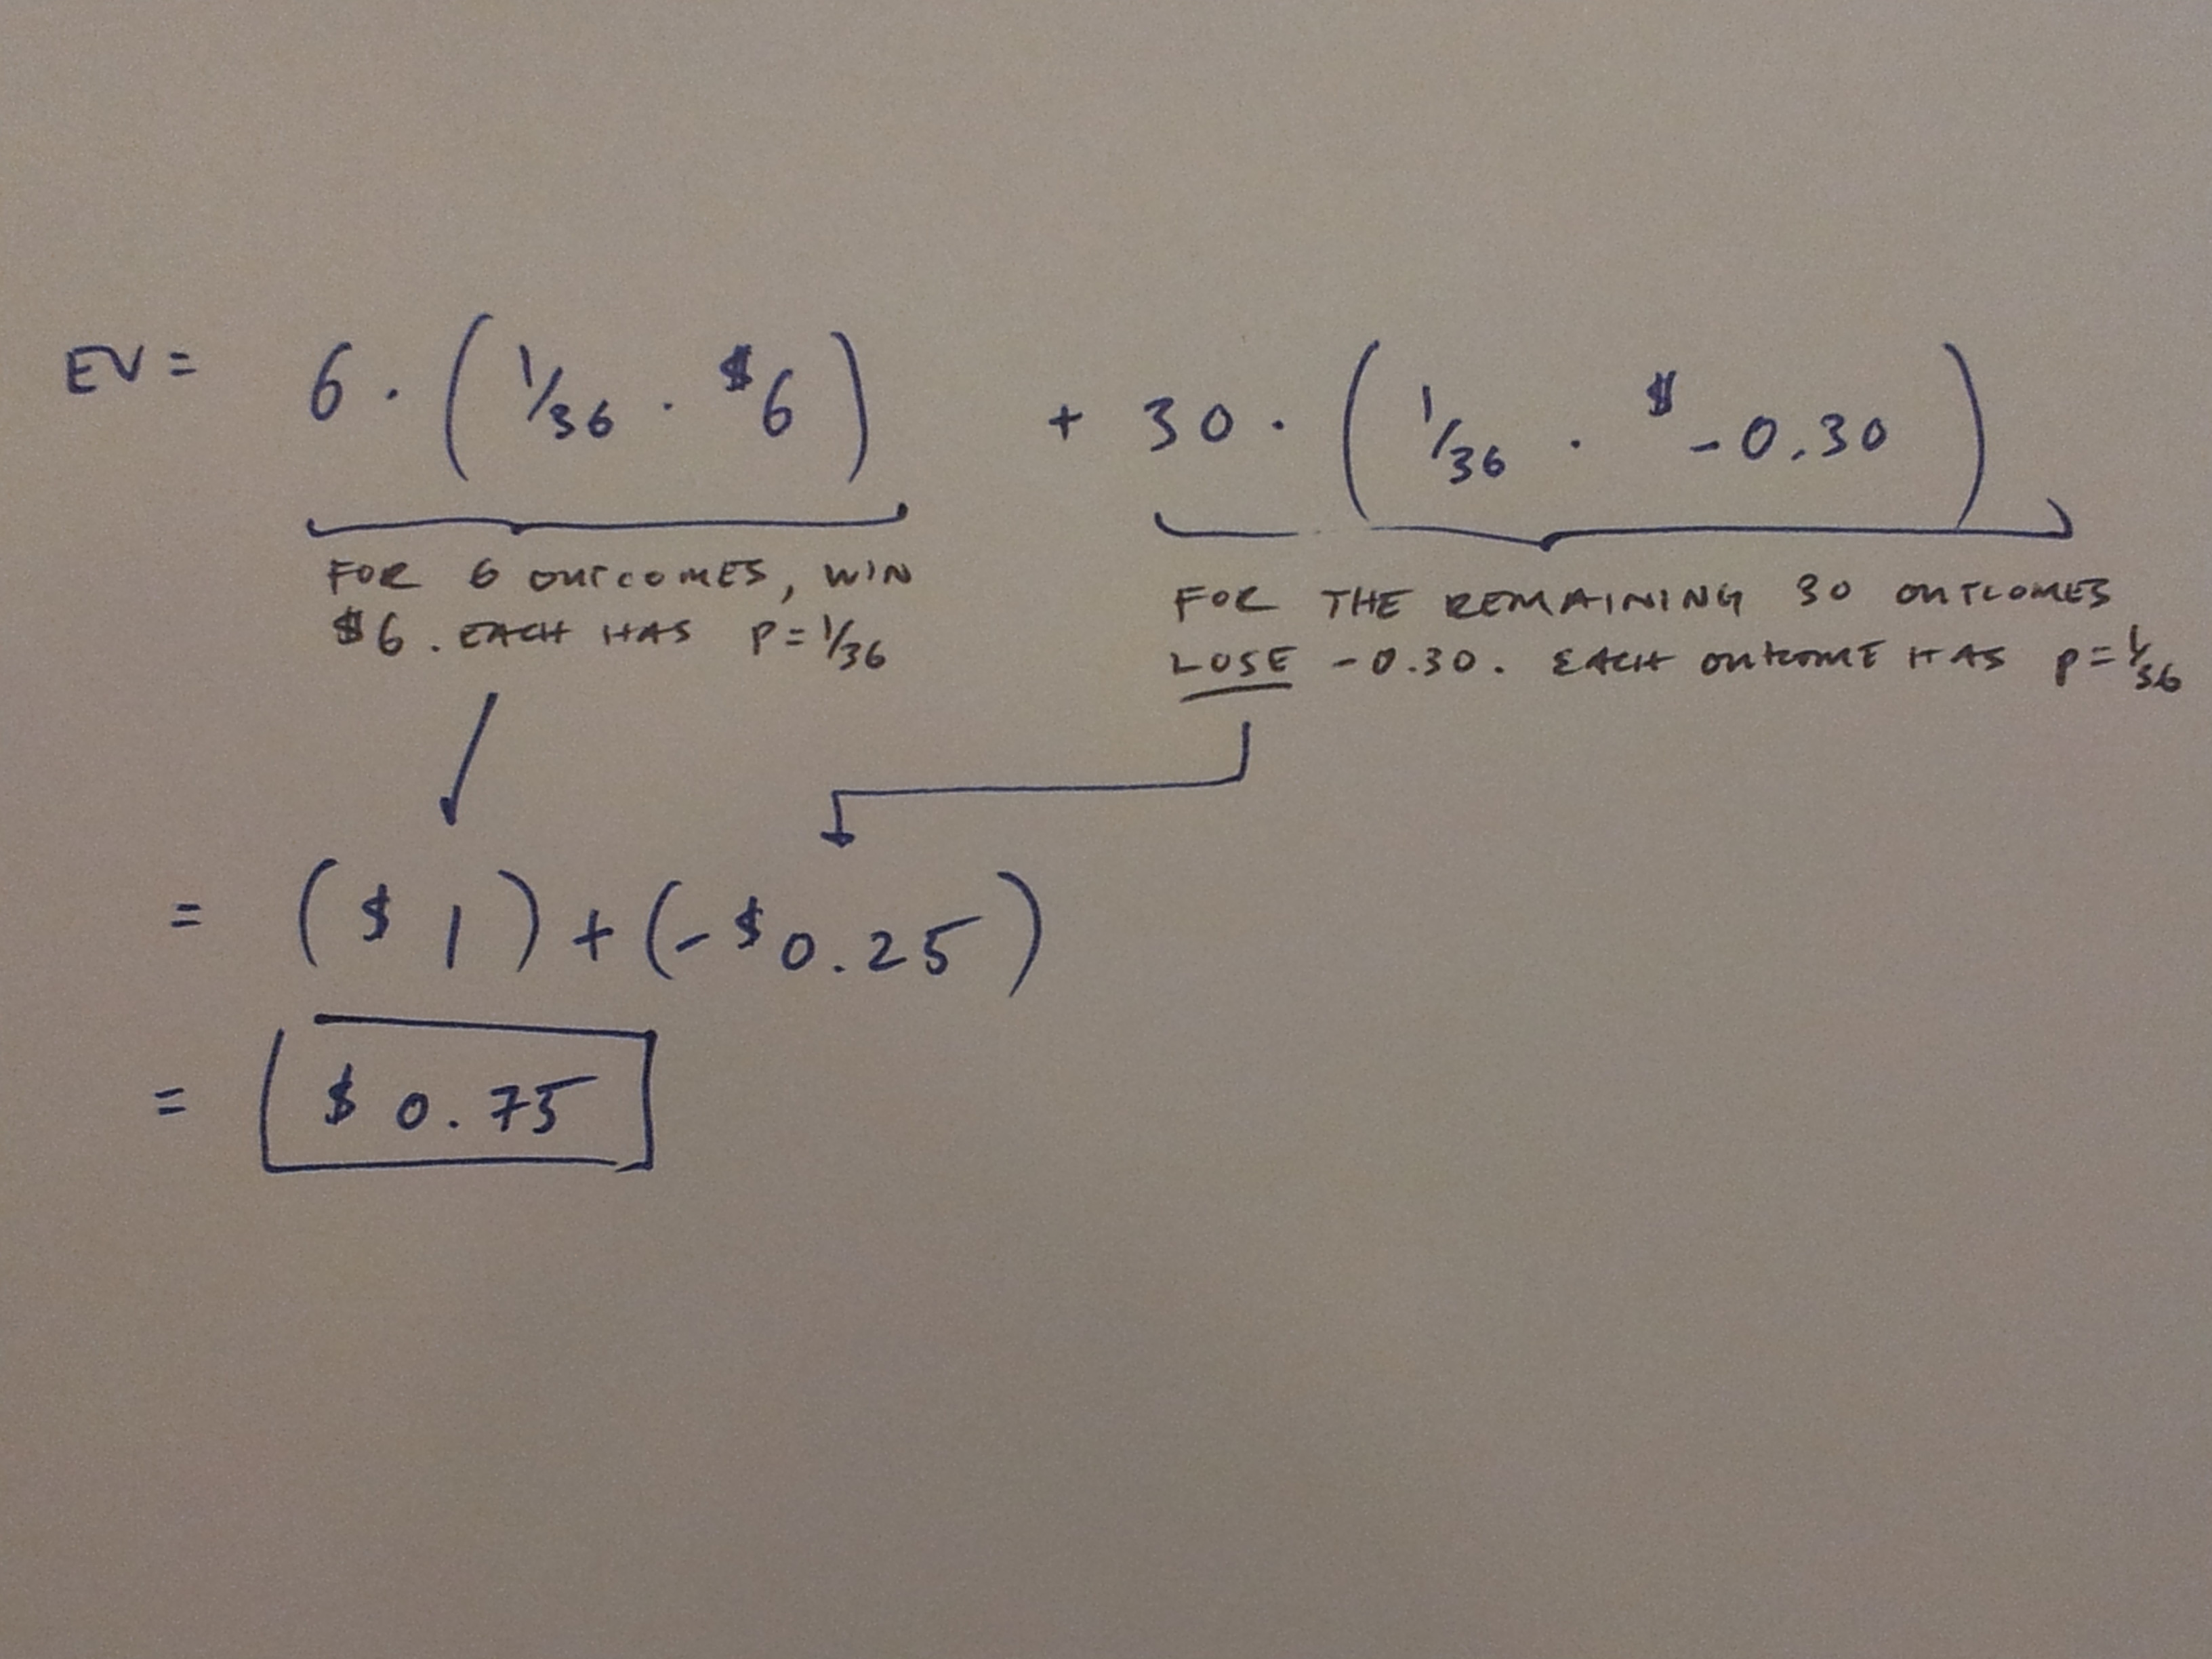 EV = 6 · (1/36 · $6) + 30 · (1/36 · $-0.30)
FOR 6 OUTCOMES, WIN
$6. EACH HAS P = 1/36
FOR THE REMAINING 30 OUTCOMES
LOSE -0.30. EACH OUTCOME HAS P = 1/36
= ($1) + (-$0.25)
= $0.75